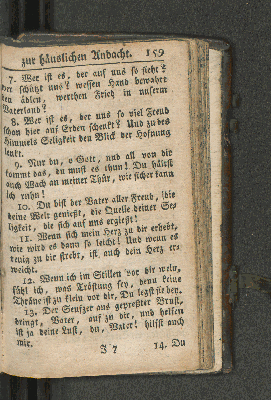 zur häuslichen Andacht. 159
7. Wer ist es, der auf uns so sieht?
wer schützt uns? wessen Hand bewahrt
den ädlen, werthen Fried in unserm
Vaterland?
8. Wer ist es, der uns so viel Freud
schon hier auf Erden schenkt? Und zu des
Himmels Seligkeit den Blick der Hofnung
lenkt.
9. Nur du, o Gott, und all von dir
kommt das, du must es thun! Du hältst
auch Wach an meiner Thür, wie sicher kann
ich ruhn!
10. Du bist der Vater aller Freud, die
deine Welt genießt, die Quelle deiner Se-
ligkeit, die sich auf uns ergießt!
11. Wenn sich mein Herz zu dir erhebt,
wie wird es dann so leicht! Und wenn es
wenig zu dir strebt, ist, auch dein Herz er-
weicht.
12. Wenn ich im Stillen vor dir wein,
fühl ich, was Tröstung sey, denn keine
Thräne ist zu klein vor dir, Du legst sie bey.
13. Der Seufzer aus gepreßter Brust,
dringt, Vater, auf zu dir, und helfen
ist ja deine Lust, du, Vater! hilfst auch
mir.
J 7 14. Du